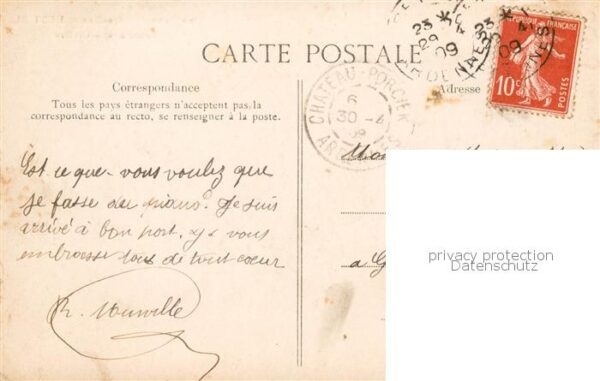 CARTE POSTALE
Correspondance
Tous les pays étrangers n'acceptent pas la
correspondance au recto, se renseigner à la poste.
Est ce que vous voulez que
je fasse du piano. Je suis
arrivé à bon port, je vous
embrasse tous de tout coeur
R.
Adresse
CHATEAU-PORCIEN
6
30 - 4
09
23
29 4
09
ARDENNES
23
09
RÉPUBLIQUE FRANÇAISE
10c
POSTES
a G
privacy protection
Datenschutz